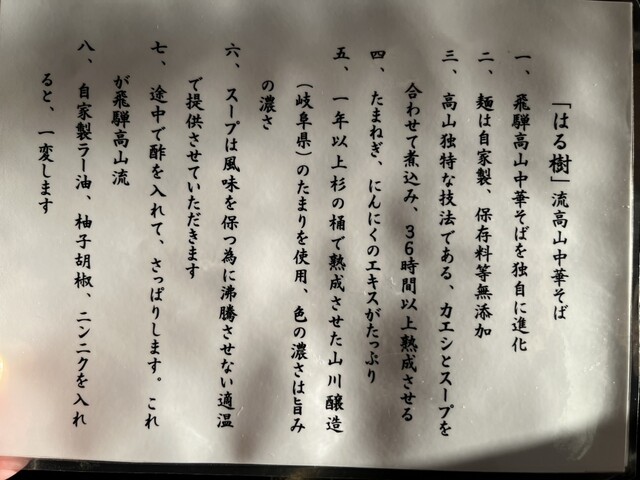 「はる樹」流高山中華そば
一、飛騨高山中華そばを独自に進化
二、麺は自家製、保存料等無添加
三、高山独特な技法である、カエシとスープを
合わせて煮込み、36時間以上熟成させる
四、たまねぎ、にんにくのエキスがたっぷり
五、一年以上杉の桶で熟成させた山川醸造
（岐阜県）のたまりを使用、色の濃さは旨み
の濃さ
六、スープは風味を保つ為に沸騰させない適温
で提供させていただきます
七、途中で酢を入れて、さっぱりします。これ
が飛騨高山流
八、自家製ラー油、柚子胡椒、ニンニクを入れ
ると、一変します